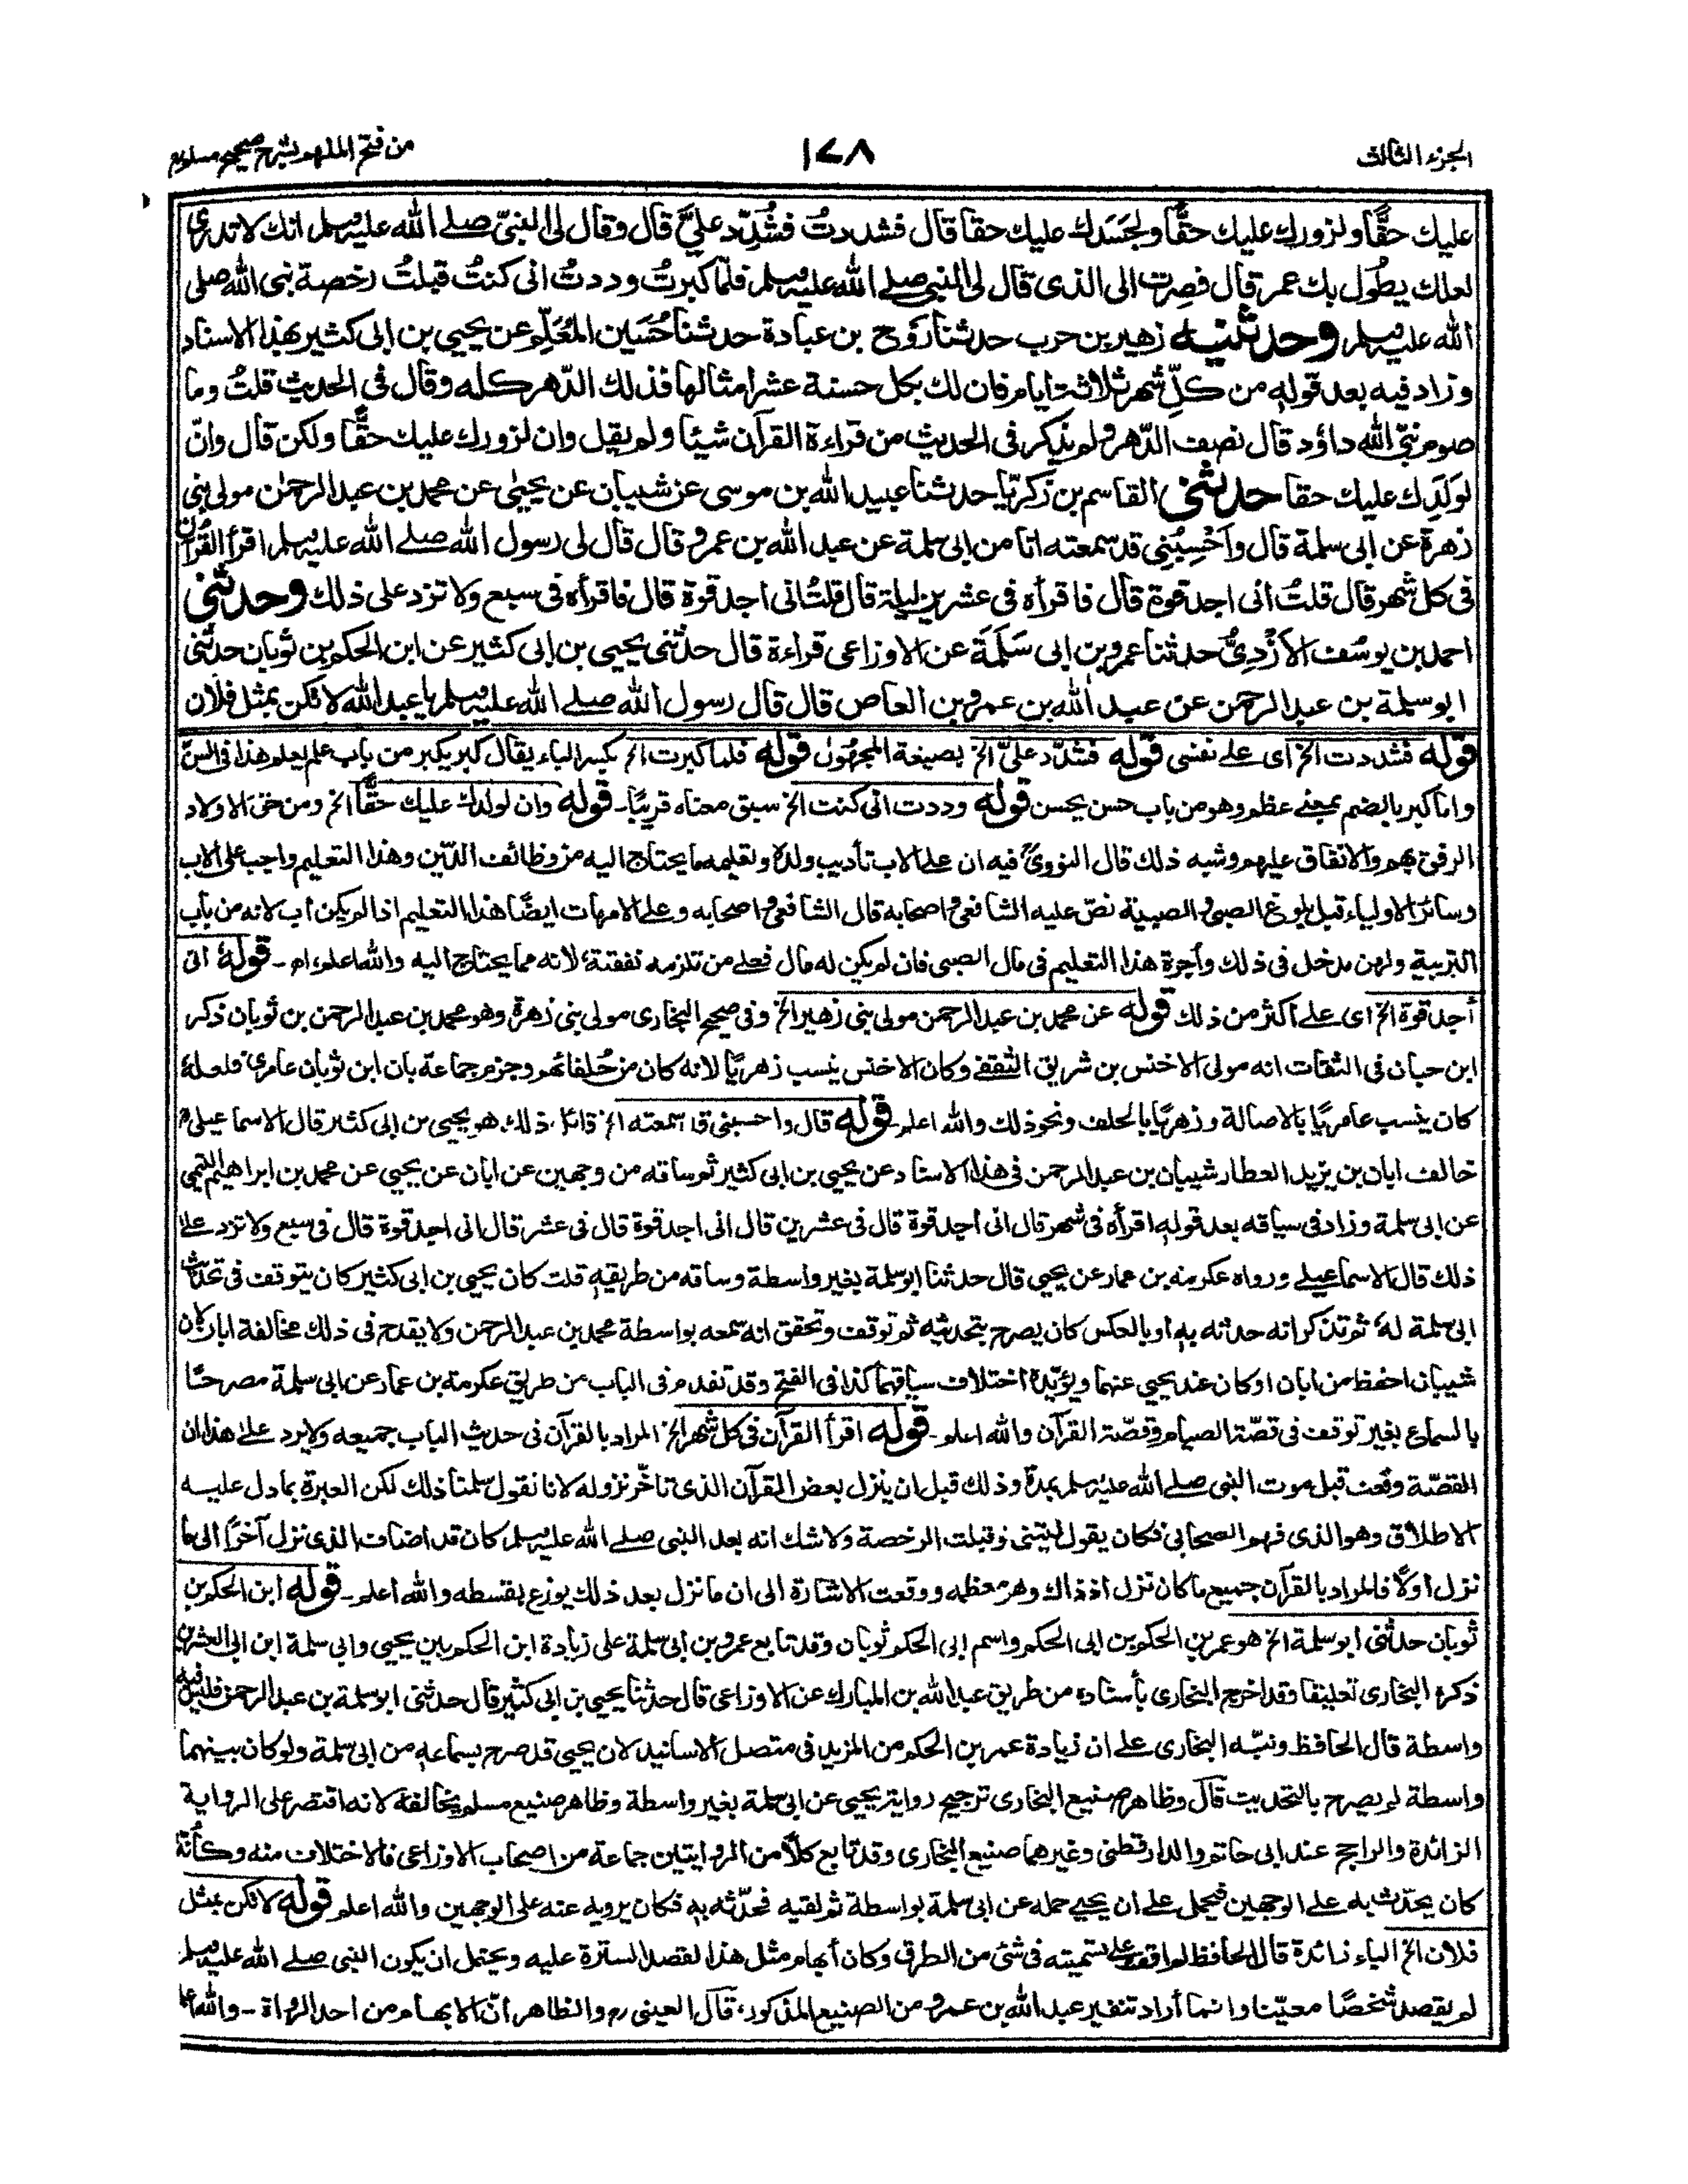 الجزء الثالث
١٧٨
من فتح الملهم بشرح صحيح مسلم
عليك حقًّا ولزورك عليك حقًّا ولجَسَدك عليك حقا قال فشددتُ فشُدِّد عليَّ قال وقال لي النبيّ صلے الله عليه وسلم انك لا تدري
لعلك يطُول بك عمر قال فصِرت الى الذى قال لى النبي صلے الله عليه وسلم فلمّا كبرتُ وددتُ انى كنتُ قبلتُ رخصة نبى الله صلى
الله عليه وسلم وحدثنيه زهير بن حرب حدثنا رَوْح بن عبادة حدثنا حُسَين المُعَلِّم عن يحيى بن ابى كثير بهذا الاسناد
وزاد فيه بعد قوله من كلِّ شهر ثلاثة ايام فان لك بكل حسنة عشر امثالها فذلك الدّهر كله وقال فى الحديث قلتُ وما
صوم نبيّ الله داؤد قال نصف الدّهر ولم يذكر فى الحديث من قراءة القرآن شيئا ولم يقل وان لزورك عليك حقًّا ولكن قال وانّ
لوَلَدِك عليك حقا حدثنى القاسم بن زكريّا حدثنا عبيد الله بن موسى عن شيبان عن يحيٰى عن محمد بن عبد الرحمٰن مولى بنى
زهرة عن ابى سلمة قال وأحْسِبُنِى قد سمعته انا من ابى سلمة عن عبد الله بن عمرو قال قال لى رسول الله صلے الله عليه وسلم اقرأ القُرآن
فى كل شهر قال قلتُ انى اجد قوة قال فاقرأه فى عشرين ليلة قال قلتُ انى اجد قوة قال فاقرأه فى سبع ولا تزد على ذلك وحدثنى
احمد بن يوسُف الأزْدِىُّ حدثنا عمرو بن ابى سَلَمَة عن الاوزاعى قراءة قال حدثنى يحيى بن ابى كثير عن ابن الحكم بن ثوبان حدثنى
ابو سلمة بن عبد الرحمن عن عبد الله بن عمرو بن العاص قال قال رسول الله صلے الله عليه وسلم يا عبد الله لا تكن بمثل فلان
قوله فشددت الخ اى على نفسى قوله فشدّد علىّ الخ بصيغة المجهول قوله فلما كبرت الخ بكسر الباء يقال كبر يكبر من باب علم يعلم هذا فى السنّ
واما كبر بالضم بمعنے عظم وهو من باب حسن يحسن قوله وددت انى كنت الخ سبق معناه قريبًا۔ قوله وان لولدك عليك حقًّا الخ ومن حق الاولاد
الرفق بهم والانفاق عليهم وشبه ذلك قال النووى فيه ان على الاب تأديب ولده وتعليمه ما يحتاج اليه من وظائف الدّين وهذا التعليم واجب على الاب
وسائر الاولياء قبل بلوغ الصبى والصبية نصّ عليه الشافعى واصحابه قال الشافعى واصحابه وعلى الامهات ايضًا هذا التعليم اذا لم يكن اب لانه من باب
التربية ولهن مدخل فى ذلك وأجرة هذا التعليم فى مال الصبى فان لم يكن له مال فعلے من تلزمه نفقته لانه مما يحتاج اليه والله اعلم، اھ۔ قوله انى
أجد قوة الخ اى على اكثر من ذلك قوله عن محمد بن عبد الرحمن مولى بنى زهير الخ وفى صحيح البخارى مولى بنى زهرة وهو محمد بن عبد الرحمن بن ثوبان ذكر
ابن حبان فى الثقات انه مولى الاخنس بن شريق الثقفے وكان الاخنس ينسب زهريًا لانه كان من حُلفائهم وجزم جماعة بان ابن ثوبان عامرى فلعله
كان ينسب عامريًا بالاصالة وزهريًا بالحلف ونحو ذلك والله اعلم۔ قوله قال واحسبنى قد سمعته الخ قائل ذلك هو يحيى بن ابى كثير قال الاسماعيلى
خالف ابان بن يزيد العطار شيبان بن عبد الرحمن فى هذا الاسناد عن يحيى بن ابى كثير ثم ساقه من وجهين عن ابان عن يحيى عن محمد بن ابراهيم التيمى
عن ابى سلمة وزاد فى سياقه بعد قوله اقرأه فى شهر قال انى اجد قوة قال فى عشرين قال انى اجد قوة قال فى عشر قال انى اجد قوة قال فى سبع ولا تزد على
ذلك قال الاسماعيلے ورواه عكرمة بن عمار عن يحيى قال حدثنا ابو سلمة بغير واسطة وساقه من طريقه قلت كان يحيى بن ابى كثير كان يتوقف فى تحديث
ابى سلمة لهٗ ثم تذكر انه حدثه به او بالعكس كان يصرح بتحديثه ثم توقف وتحقق انه سمعه بواسطة محمد بن عبد الرحمن ولا يقدح فى ذلك مخالفة ابان لان
شيبان احفظ من ابان او كان عند يحيى عنهما ويؤيّدهٗ اختلاف سياقهما كذا فى الفتح وقد تقدم فى الباب من طريق عكرمة بن عمار عن ابى سلمة مصرحًا
بالسماع بغير توقف فى قصّة الصيام وقصّة القرآن والله اعلم۔ قوله اقرأ القرآن فى كل شهر الخ المراد بالقرآن فى حديث الباب جميعه ولا يرد على هذا ان
القصّة وقعت قبل موت النبى صلے الله عليه وسلم بمدة وذلك قبل ان ينزل بعض القرآن الذى تأخّر نزوله لانا نقول سلمنا ذلك لكن العبرة بما دل عليه
الاطلاق وهو الذى فهم الصحابى فكان يقول ليتنى لو قبلت الرخصة ولا شك انه بعد النبى صلے الله عليه وسلم كان قد اضاف الذى نزل آخرًا الى ما
نزل اولًا فالمراد بالقرآن جميع ما كان نزل اذ ذاك وهو معظمه ووقعت الاشارة الى ان ما نزل بعد ذلك يوزع بقسطه والله اعلم۔ قوله ابن الحكم بن
ثوبان حدثنى ابو سلمة الخ هو عمر بن الحكم بن ابى الحكم واسم ابى الحكم ثوبان وقد تابع عمرو بن ابى سلمة على زيادة ابن الحكم بين يحيى وابى سلمة ابن ابى العشرين
ذكره البخارى تعليقا وقد اخرج البخارى بأسناده من طريق عبد الله بن المبارك عن الاوزاعى قال حدثنا يحيى بن ابى كثير قال حدثنى ابو سلمة بن عبد الرحمن فليس فيه
واسطة قال الحافظ ونبّه البخارى على ان زيادة عمر بن الحكم من المزيد فى متصل الاسانيد لان يحيى قد صرح بسماعه من ابى سلمة ولو كان بينهما
واسطة لم يصرح بالتحديث قال وظاهر صنيع البخارى ترجيح رواية يحيى عن ابى سلمة بغير واسطة وظاهر صنيع مسلم يخالفه لانه اقتصر على الرواية
الزائدة والراجح عند ابى حاتم والدارقطنى وغيرهما صنيع البخارى وقد تابع كلاًّ من الروايتين جماعة من اصحاب الاوزاعى فالاختلاف منه وكأنّهٗ
كان يحدّث به على الوجهين فيحمل على ان يحيى حمله عن ابى سلمة بواسطة ثم لقيه فحدّثه به فكان يرويه عنه على الوجهين والله اعلم قوله لا تكن بمثل
فلان الخ الباء زائدة قال الحافظ لم اقف على تسميته فى شئ من الطرق وكأن أبهام مثل هذا لقصد السترة عليه ويحتمل ان يكون النبى صلے الله عليه وسلم
لم يقصد شخصًا معيّنا وانما أراد تنفير عبد الله بن عمرو من الصنيع المذكور، قال العينى رح والظاهر انّ الابهام من احد الرواة۔ والله اعلم